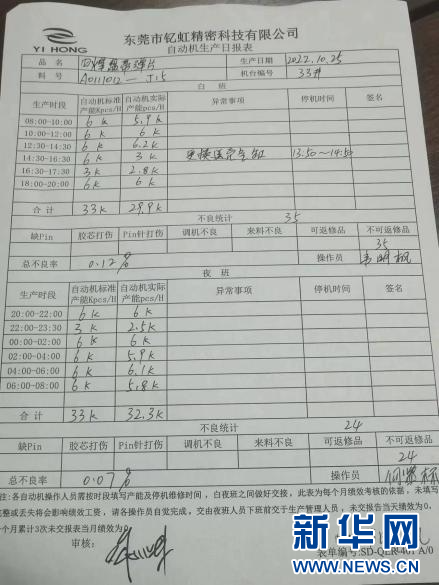 YI HONG
东莞市钇虹精密科技有限公司
自动机生产日报表
品名 生产日期 2022.10.25
料号 A0111012—J15 机台编号 33#
白 班
生产时段 自动机标准产能Kpcs/H 自动机实际产能pcs/H 异常事项 停机时间 签名
08:00-10:00 6K 5.9K
10:00-12:00 6K 6K
12:30-14:30 6K 6.2K
14:30-16:30 6K 3K 13:50~14:50
16:30-17:30 3K 2.8K
18:00-20:00 6K 6K
合 计 33K 29.9K
不良统计 35
缺Pin 胶芯打伤 Pin针打伤 调机不良 来料不良 可返修品 不可返修品
35
总不良率 0.12% 操作员
夜 班
生产时段 自动机标准产能Kpcs/H 自动机实际产能pcs/H 异常事项 停机时间 签名
20:00-22:00 6K 6K
22:00-23:30 3K 2.5K
00:00-02:00 6K 6K
02:00-04:00 6K 5.9K
04:00-06:00 6K 6.1K
06:00-08:00 6K 5.8K
合 计 33K 32.3K
不良统计 24
缺Pin 胶芯打伤 Pin针打伤 调机不良 来料不良 可返修品 不可返修品
24
总不良率 0.07% 操作员
注:各自动机操作人员需按时段填写产能及停机维修时间，白夜班之间做好交接，此表为每个月绩效考核的依据，未填写
完整或丢失将会影响绩效工资，请各操作员自觉完成，交由夜班人员下班前交于生产管理人员，未交报告当天绩效为0，
一个月累计3次未交报表当月绩效为0
审核：
表单编号:SD-QER-401 A/0
新华网